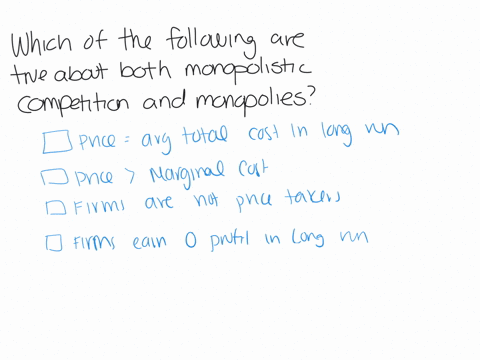 Which of the following are
true about both monopolistic
competition and monopolies?
price = avg total cost in long run
price > Marginal Cost
Firms are not price takers
Firms earn 0 profit in long run